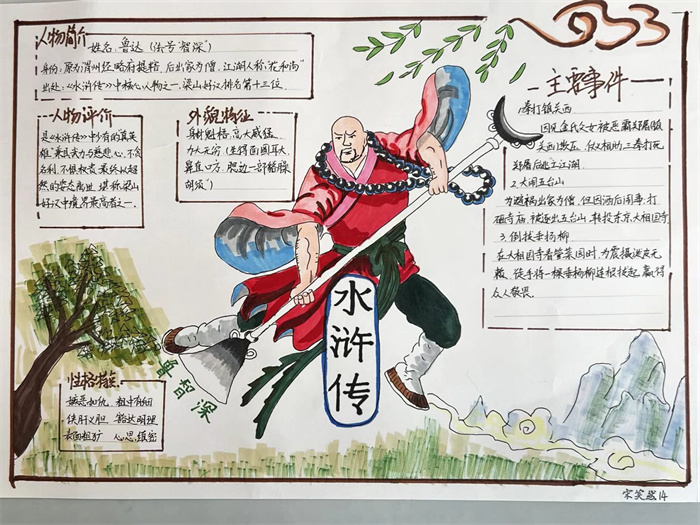 人物简介
姓名:鲁达(法号"智深")
身份:原为渭州经略府提辖,后出家为僧,江湖人称"花和尚"
出处:《水浒传》中核心人物之一,梁山好汉排名第十三位
人物评价
是《水浒传》中少有的"真英
雄"兼具武力与慈悲心,不贪
名利,不惧权贵,最终以超
然的姿态离世,堪称梁山
好汉中境界最高者之一.
外貌特征
身材魁梧,高大威猛,
力大无穷(生得面圆耳大,
鼻直口方,腮边一部貉𦡱
胡须")
主要事件
1.拳打镇关西
因见金氏父女被恶霸郑屠(镇
关西)欺压,仗义相助,三拳打死
郑屠后逃亡江湖.
2.大闹五台山
为避祸出家为僧,但因酒后闹事,打
砸寺庙,被逐出五台山,转投东京大相国寺
3.倒拔垂杨柳
在大相国寺看管菜园时,为震慑泼皮无
赖,徒手将一棵垂杨柳连根拔起,赢得
众人敬畏.
水浒传
鲁智深
性格特点
嫉恶如仇 粗中有细
侠肝义胆 豁达明理
表面粗犷 心思缜密
14